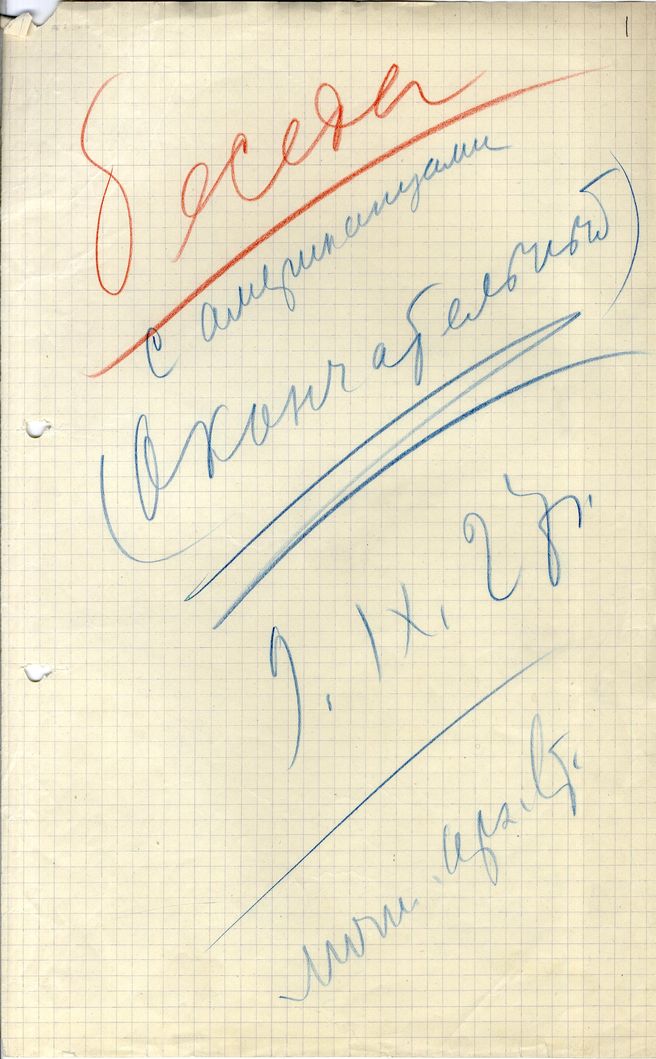 1
Беседы
с американцами
(Окончательный)
9. IX. 27 г.
арх.